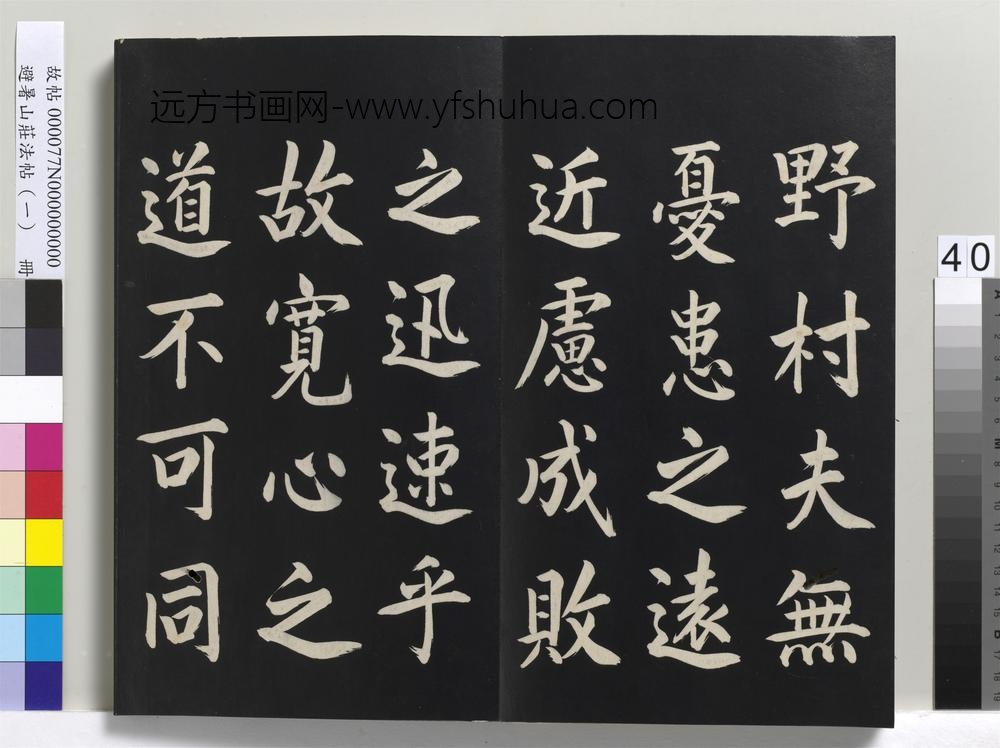 野村夫無
憂患之遠
近慮成敗
之迅速乎
故寬心之
道不可同
远方书画网-www.yfshuhua.com
故帖 000077N000000000
避暑山莊法帖（一） 冊
40